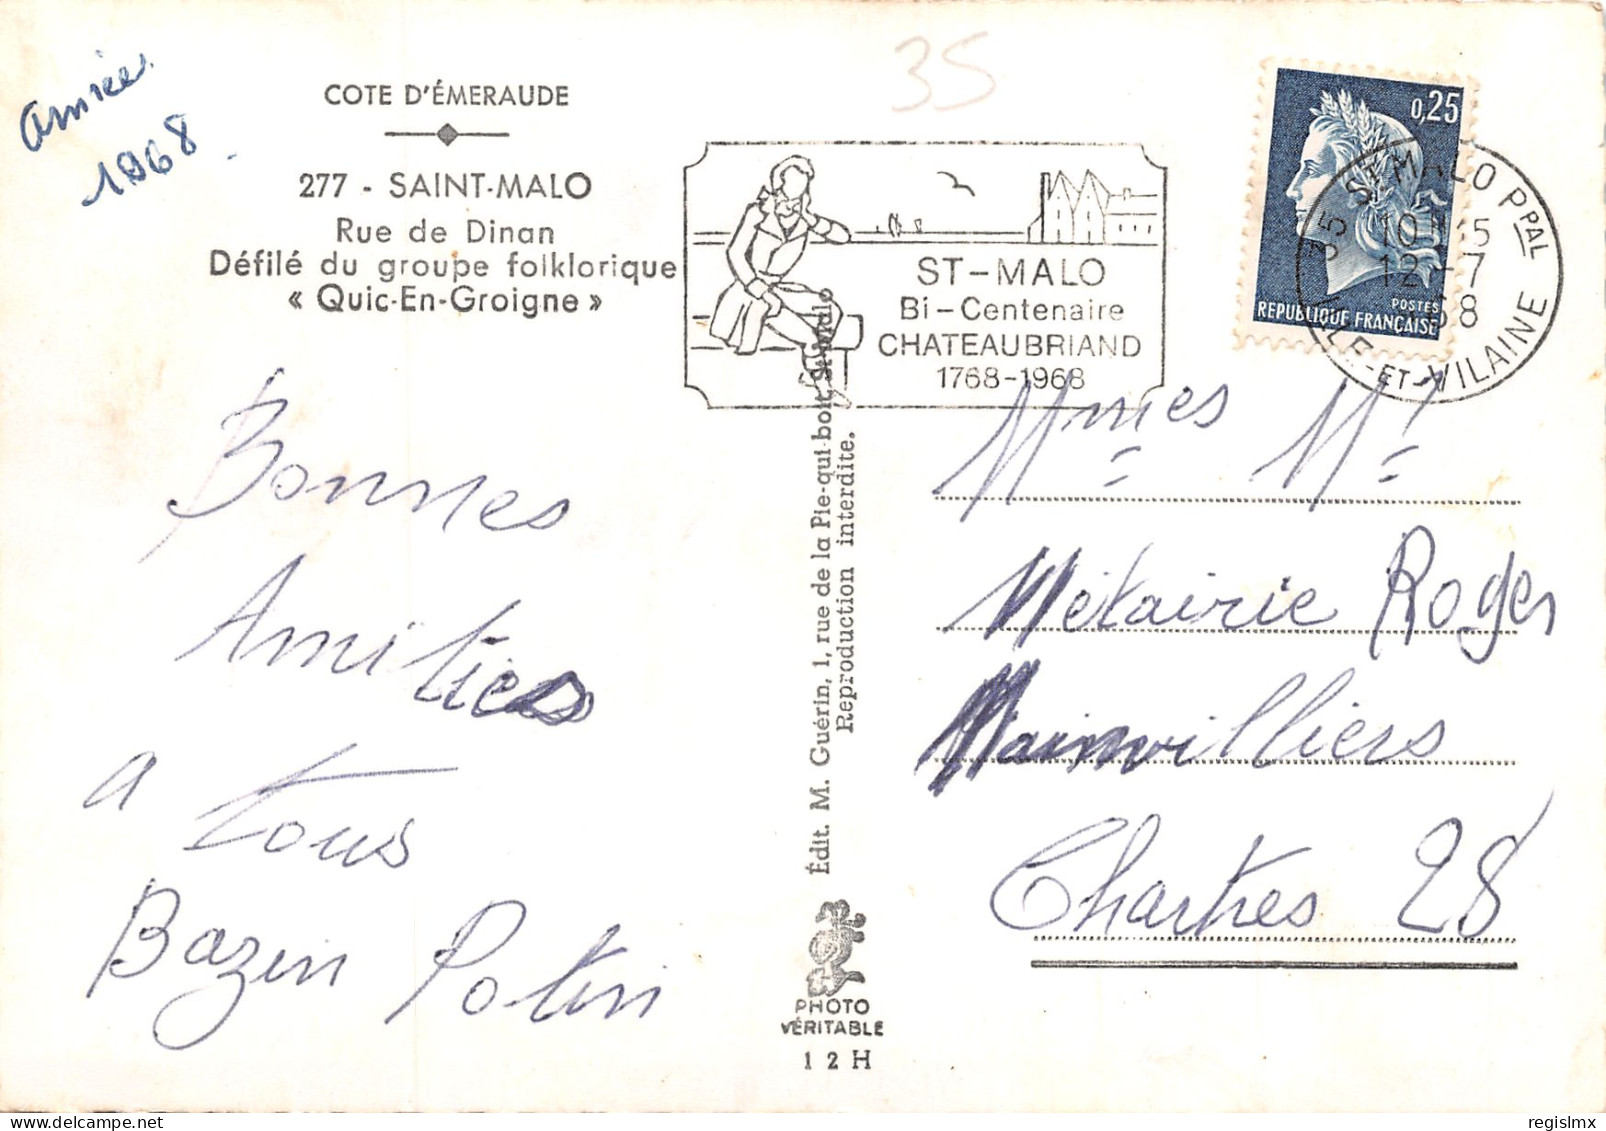 année
1968
35
COTE D'ÉMERAUDE
277 - SAINT-MALO
Rue de Dinan
Défilé du groupe folklorique
« Quic-En-Groigne »
ST-MALO
Bi-Centenaire
CHATEAUBRIAND
1768-1968
0,25
POSTES
REPUBLIQUE FRANÇAISE
35 ST MALO PPAL
12-7
ILLE-ET-VILAINE
Bonnes
Amitiés
a tous
Bazin Potin
Édit. M. Guérin, 1, rue de la Pie-qui-boit, St-Malo
Reproduction interdite.
PHOTO
VÉRITABLE
12H
Mmes Mr
Métairie Roger
Mainvilliers
Chartres 28
delcampe.net
regislmx